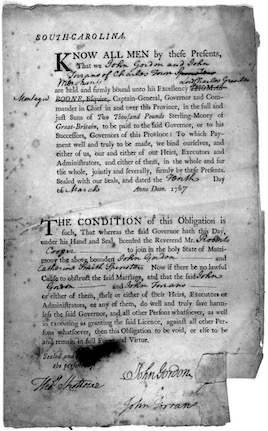 SOUTH-CAROLINA.
KNOW ALL MEN by these Presents,
That we John Gordon and John
of Charles Town
are held and firmly bound unto his Excellency THOMAS
BOONE, Esquire, Captain-General, Governor and Com-
mander in Chief in and over this Province, in the full and
just Sum of Two Thousand Pounds Sterling-Money of
Great-Britain, to be paid to the said Governor, or to his
Successors, Governors of this Province: To which Pay-
ment well and truly to be made, we bind ourselves, and
either of us, our and either of our Heirs, Executors and
Administrators, and either of them, in the whole and for
the whole, jointly and severally, firmly by these Presents.
Sealed with our Seals, and dated the Day
of March Anno Dom. 1767
THE CONDITION of this Obligation is
such, That whereas the said Governor hath this Day,
under his Hand and Seal, licensed the Reverend Mr. Robert
Cooper to join in the holy State of Matri-
mony the above bounden John Gordon and
Catherine Smith Spinster Now if there be no lawful
Cause to obstruct the said Marriage, and that the said John
Gordon and John
or either of them, their or either of their Heirs, Executors or
Administrators, or any of them, do well and truly save harm-
less the said Governor, and all other Persons whatsoever, as well
in executing as granting the said Licence, against all other Per-
sons whatsoever, then this Obligation to be void, or else to be
and remain in full Force and Virtue.
Sealed and
the
John Gordon
John